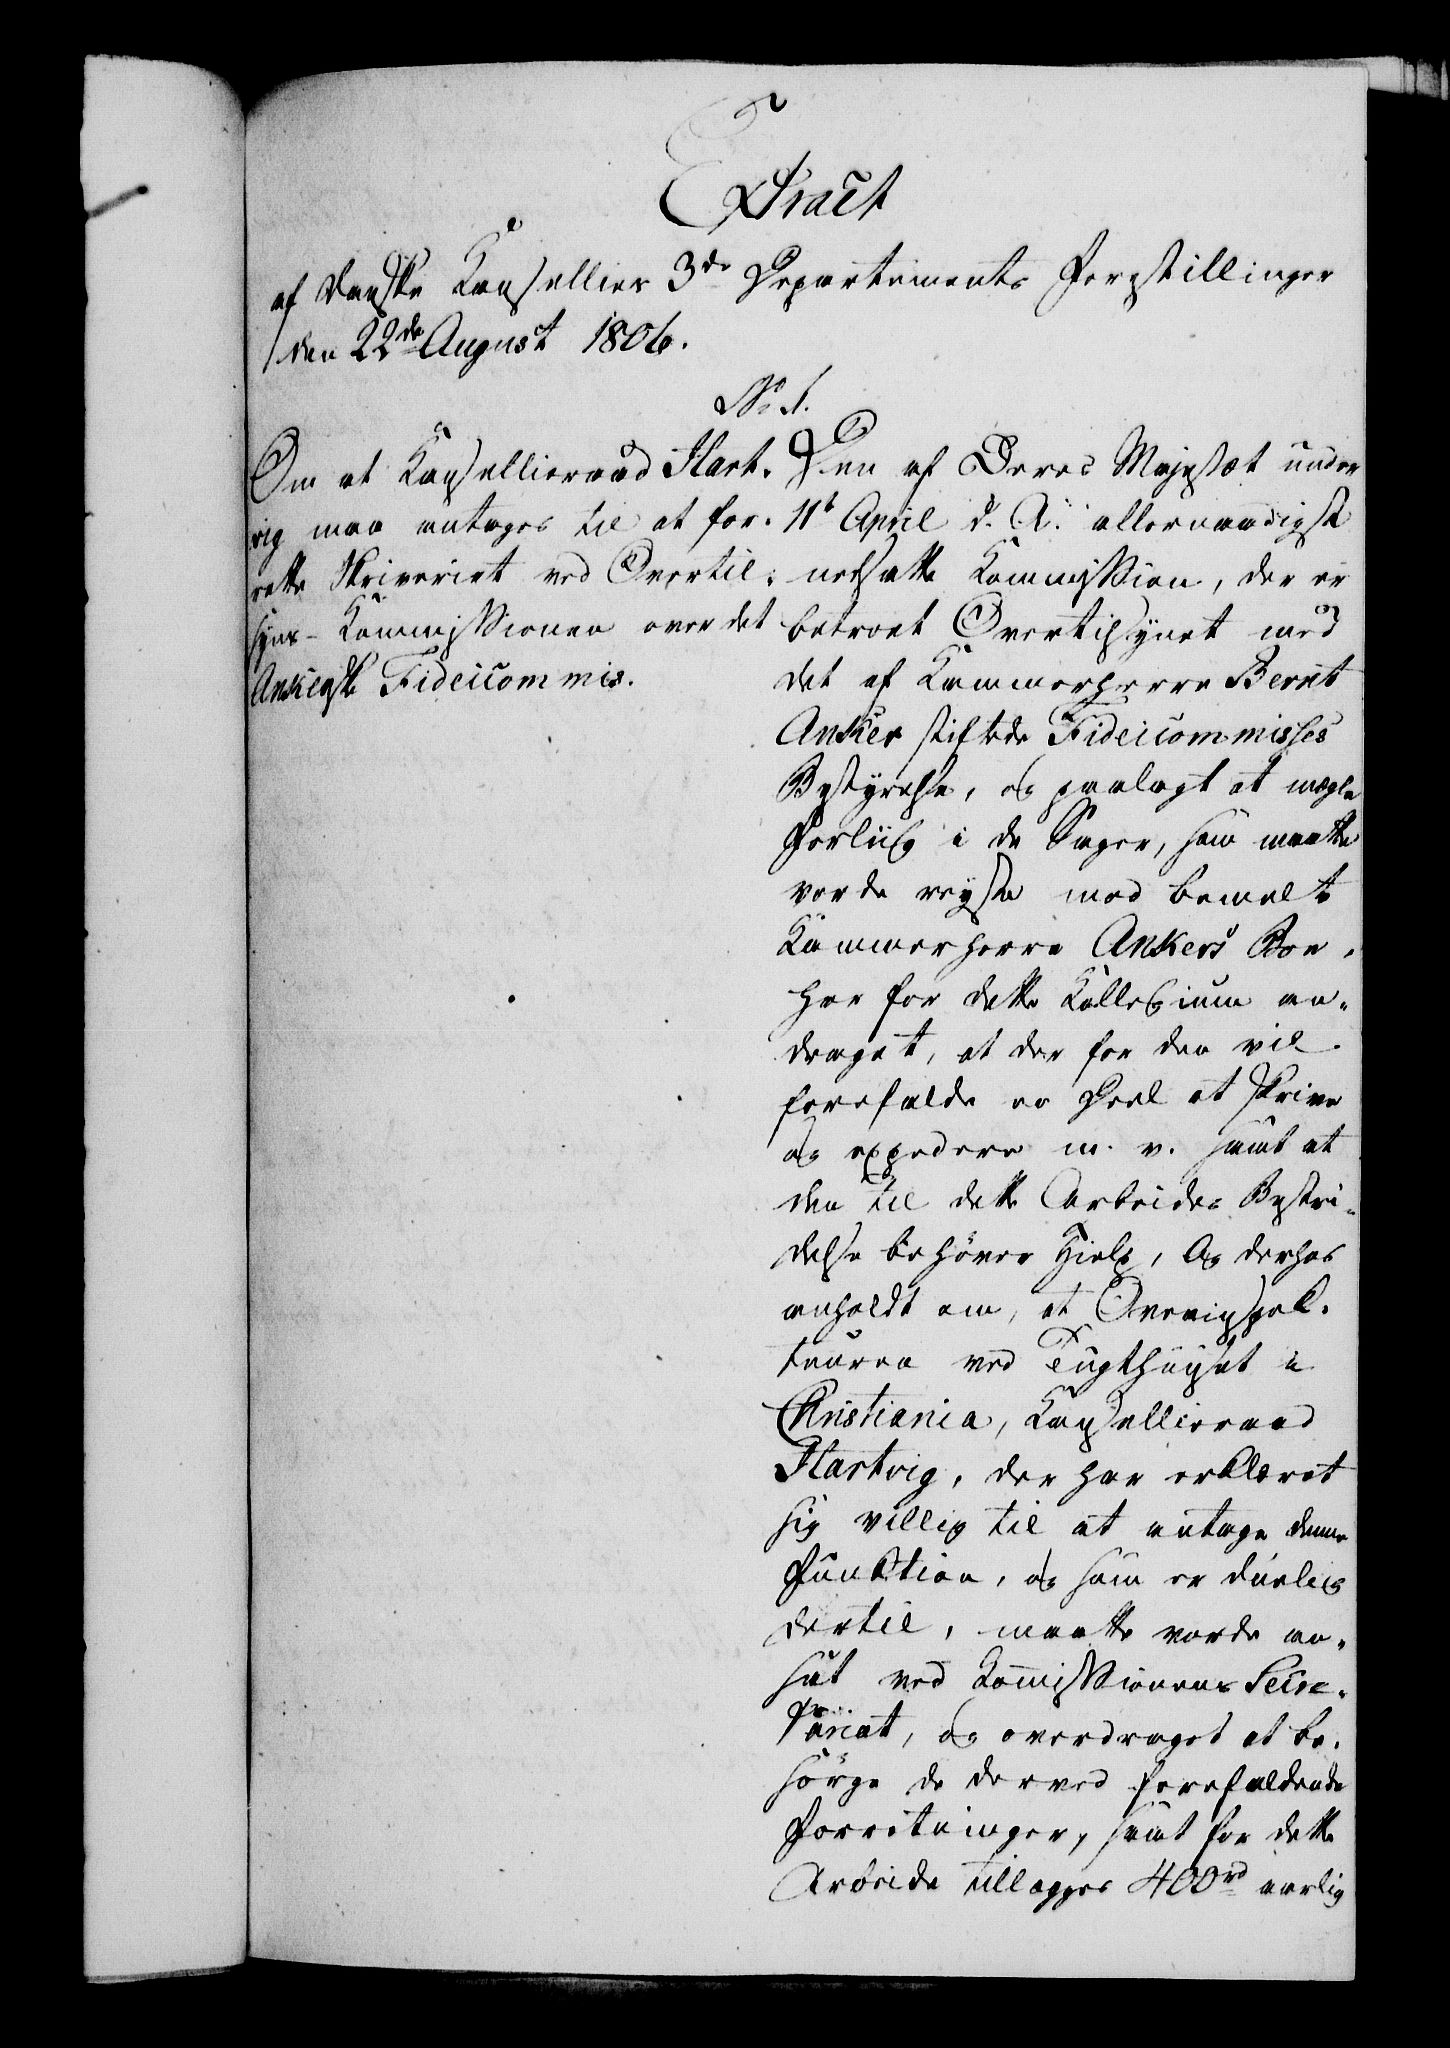 Extract
af danske Kansellies 3de Departements Forestillinger
den 22de August 1806.
No 1.
Om at Kansellieraad Hart-
vig maa antages til at for-
rette Skriveriet ved Overtil-
syns-Kommissionen over det
Ankerske Fideicommis.
Den af Deres Majestæt under
11te April d. A. allernaadigst
nedsatte Kommission, der er
betroet Overtilsynet med
det af Kammerherre Bernt
Anker stiftede Fideicommisses
Bestyrelse, og paalagt at mægle
Forliig i de Sager, som maatte
vorde reyste mod bemelte
Kammerherre Ankers Boe,
har for dette Kollegium an-
draget, at der for den vil
forefalde en Deel at skrive
og expedere m. v. samt at
den til dette Arbeides Bestri-
delse behøver Hielp, og derhos
anholdt om, at Overinspek-
teuren ved Tugthuuset i
Christiania, Kansellieraad
Hartvig, der har erklæret
sig villig til at antage denne
Funktion, og som er duelig
dertil, maatte vorde an-
sat ved Kommissionens Secre-
tariat, og overdraget at be-
sørge de derved forefaldende
Forretninger, samt for dette
Arbeide tillægges 400rd aarlig